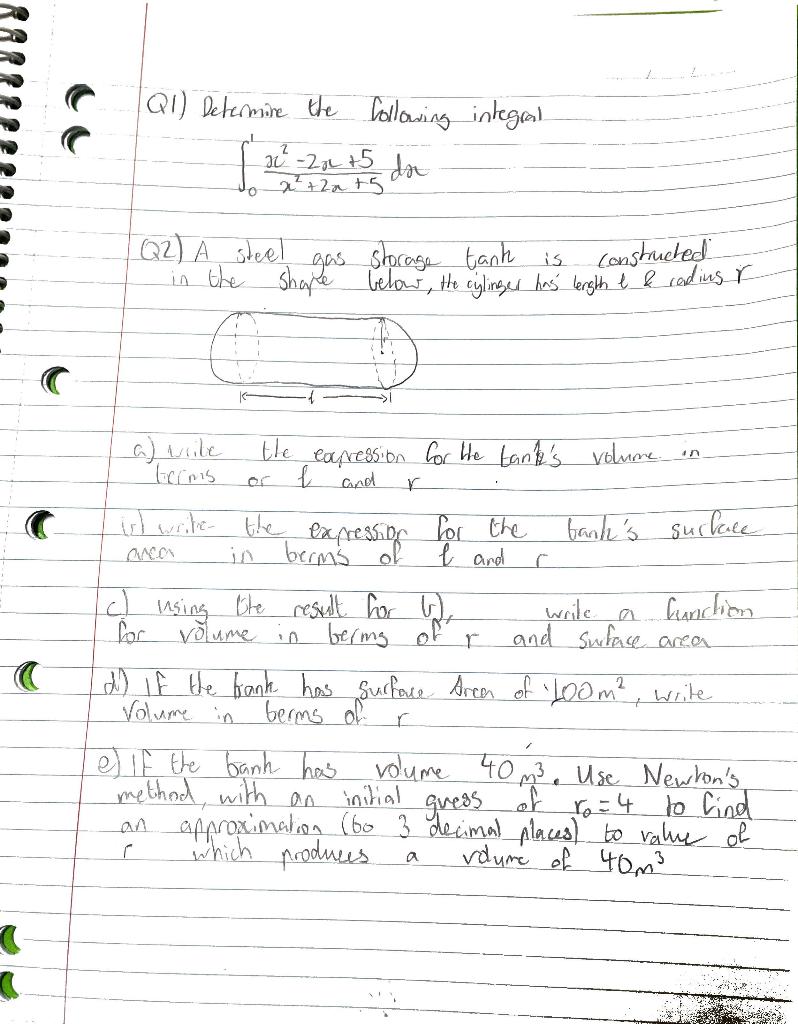 Q1) Determine the following integral
∫₀¹ (x² - 2x + 5)/(x² + 2x + 5) dx
Q2) A steel gas storage tank is constructed
in the shape below, the cylinger has length l & radius r
r
l
a) write the expression for the tank's volume in
terms or l and r
b) write the expression for the tank's surface
area in terms of l and r
c) using the result for b), write a function
for volume in terms of r and surface area
d) If the tank has surface Area of 100m², write
Volume in terms of r
e) If the tank has volume 40 m³. Use Newton's
method, with an initial guess of r₀ = 4 to find
an approximation (to 3 decimal places) to value of
r which produces a volume of 40m³